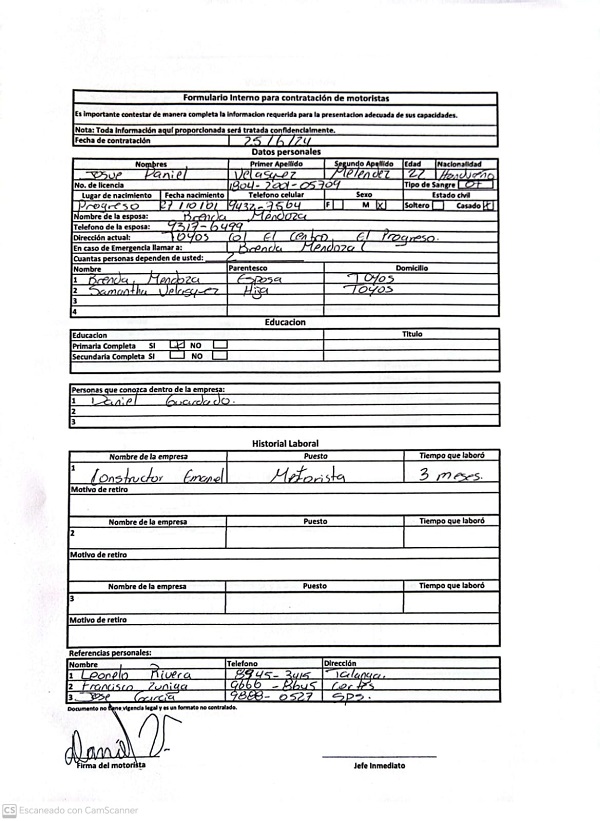 Formulario Interno para contratación de motoristas
Es importante contestar de manera completa la informacion requerida para la presentacion adecuada de sus capacidades.
Nota: Toda Información aquí proporcionada será tratada confidencialmente.
Fecha de contratación 25/6/24
Datos personales
Nombres Primer Apellido Segundo Apellido Edad Nacionalidad
Josue Daniel Velasquez Melendez 22 Hondureño
No. de licencia 1804-2001-05709 Tipo de Sangre O+
Lugar de nacimiento Fecha nacimiento Telefono celular Sexo Estado civil
Progreso 9432-7564 F M X Soltero Casado X
Nombre de la esposa: Brenda Mendoza
Telefono de la esposa: 9317-6499
Dirección actual: Toyos Col El Centro, El Progreso.
En caso de Emergencia llamar a: Brenda Mendoza
Cuantas personas dependen de usted: 2
Nombre Parentesco Domicilio
1 Brenda Mendoza Esposa Toyos
2 Samantha Velasquez Hija Toyos
3
4
Educacion
Educacion Titulo
Primaria Completa SI X NO
Secundaria Completa SI NO
Personas que conozca dentro de la empresa:
1 Daniel Guardado.
2
3
Historial Laboral
Nombre de la empresa Puesto Tiempo que laboró
1 Constructor Emanel Motorista 3 meses.
Motivo de retiro
Nombre de la empresa Puesto Tiempo que laboró
2
Motivo de retiro
Nombre de la empresa Puesto Tiempo que laboró
3
Motivo de retiro
Referencias personales:
Nombre Telefono Dirección
1 Leonelo Rivera 8945-3415 Talanga.
2 Francisco Zuniga 9666-8645 Cortes
3 Jose Garcia 9888-0527 SPS.
Documento no tiene vigencia legal y es un formato no contralado.
Daniel V.
Firma del motorista Jefe Inmediato
CS Escaneado con CamScanner